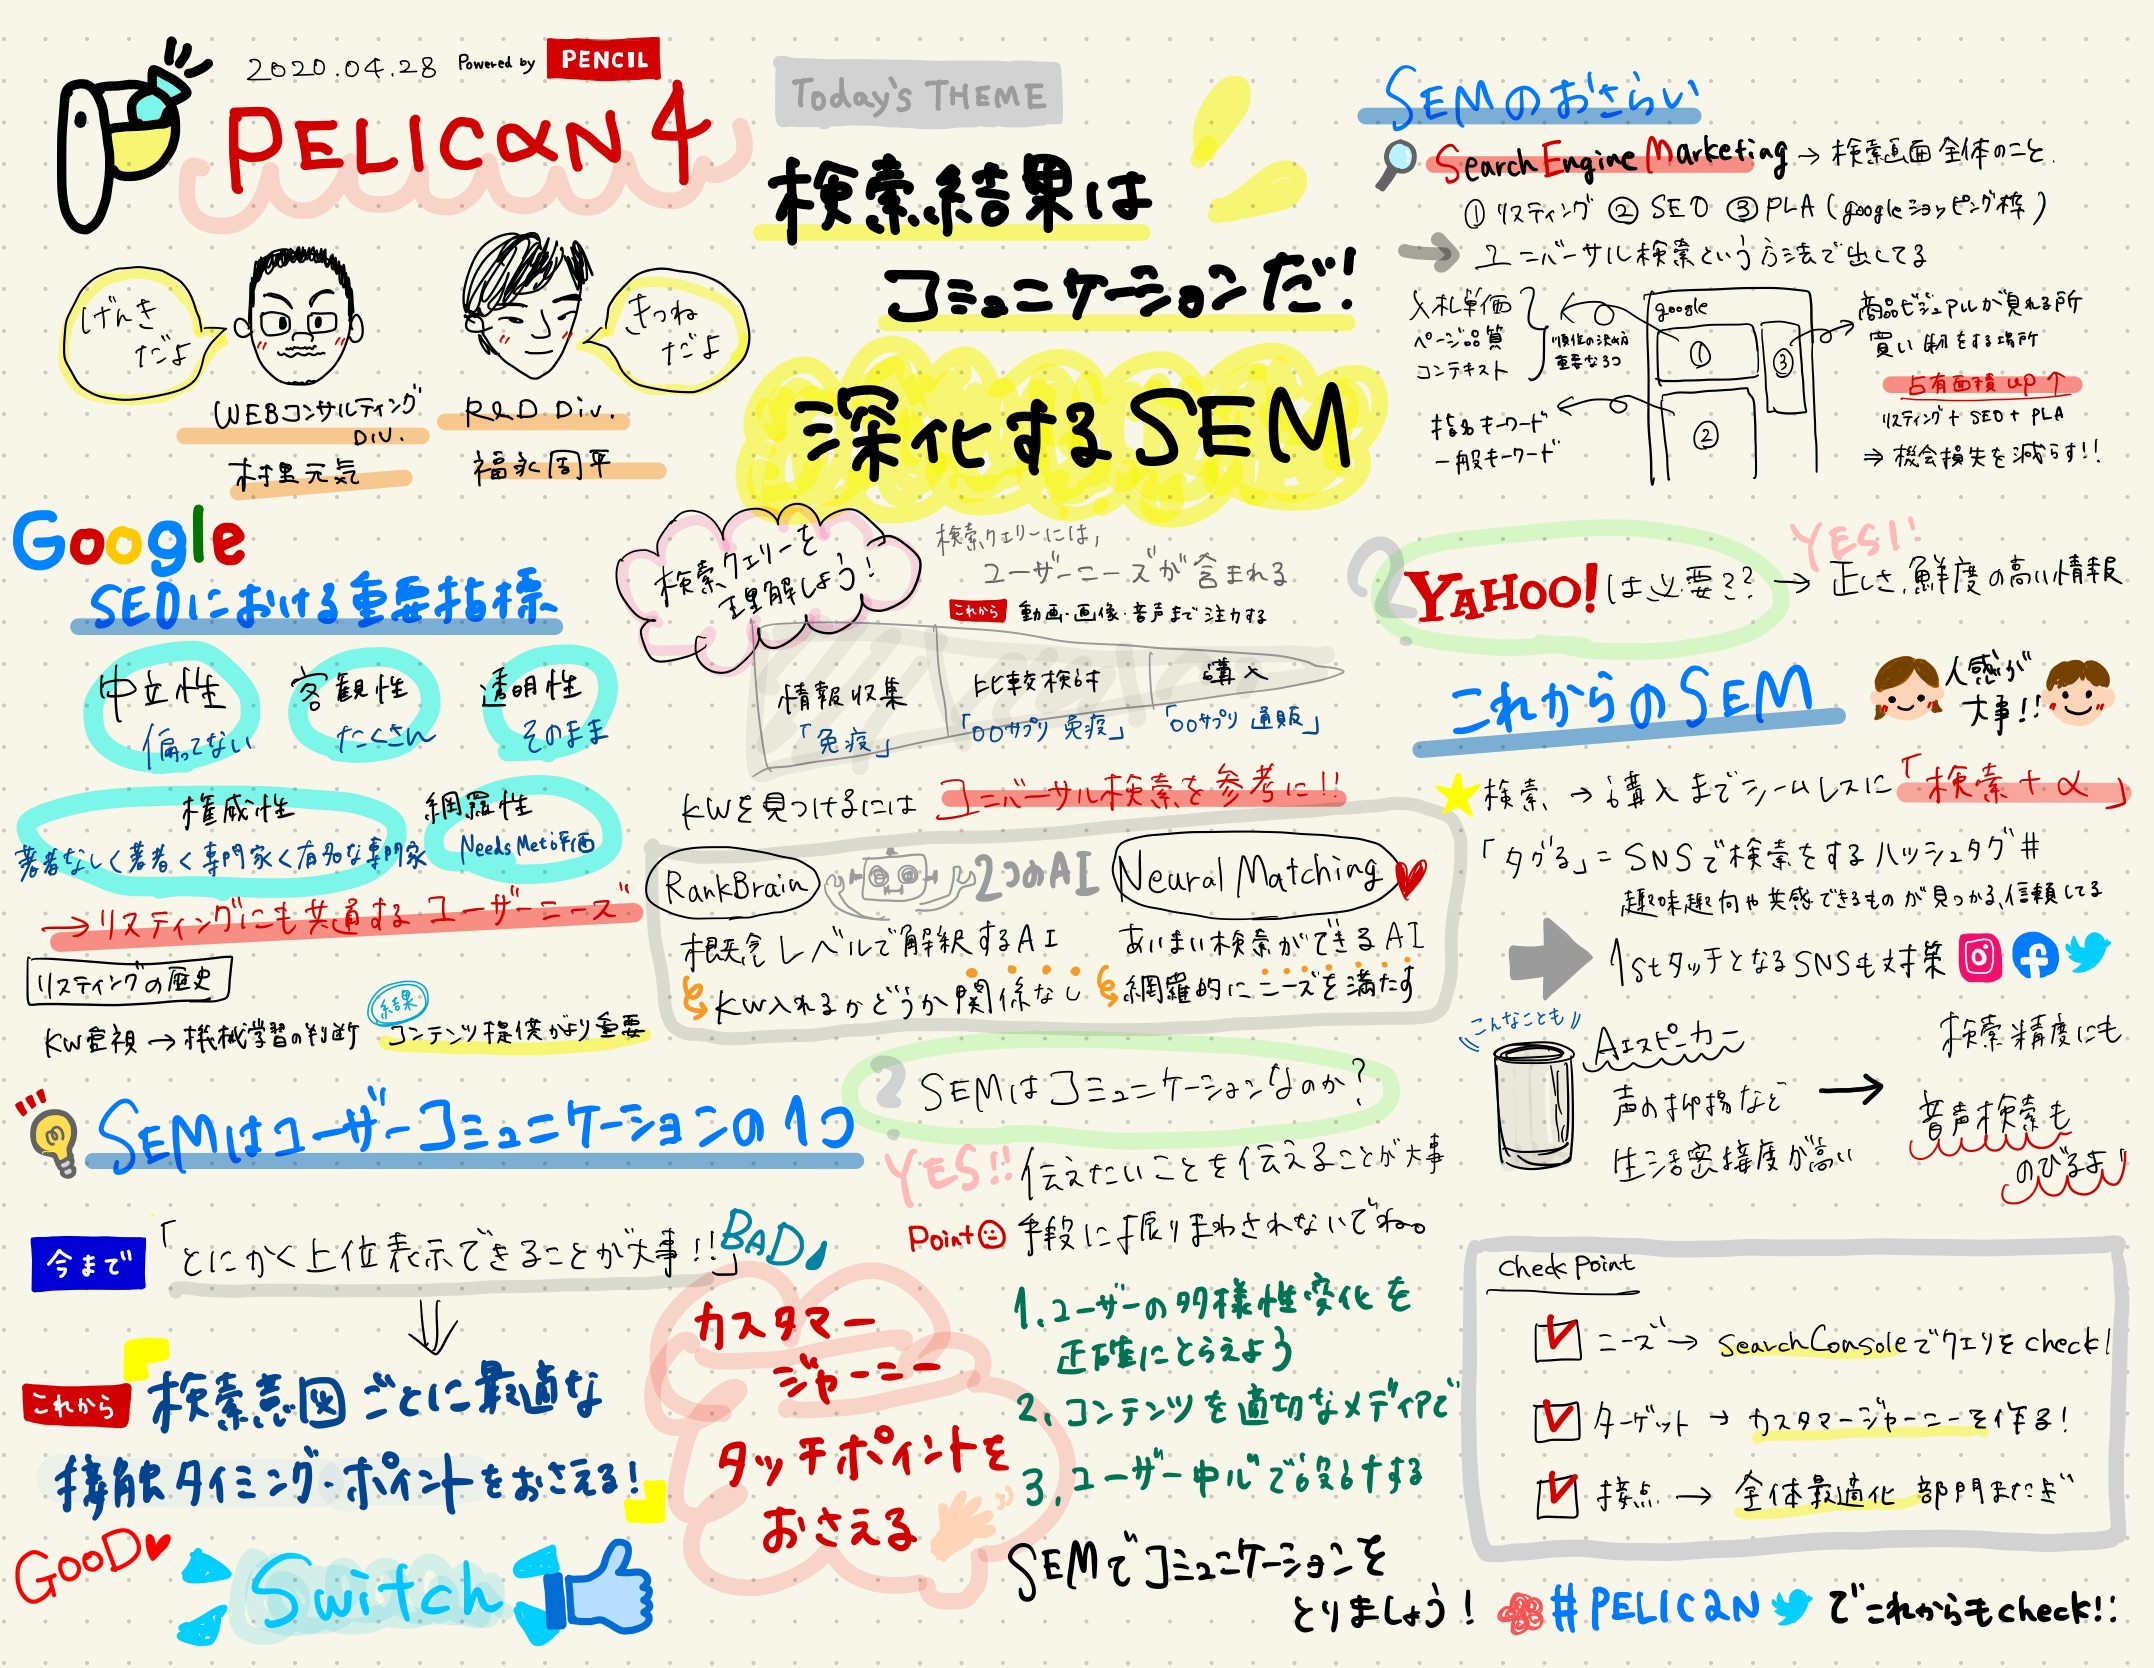 2020.04.28 Powered by PENCIL
PELICAN 4
げんき
だよ
きつね
だよ
WEBコンサルティング
DIV.
村里元気
R&D Div.
福永周平
Today's THEME
検索結果は
コミュニケーションだ!
深化するSEM
SEMのおさらい
Search Engine Marketing → 検索画面全体のこと.
① リスティング ② SEO ③ PLA (googleショッピング枠)
→ ユニバーサル検索という方法で出してる
入札単価
ページ品質
コンテキスト
順位の決め方
重要な3つ
指名キーワード
一般キーワード
google
①
②
③
商品ビジュアルが見れる所
買い物をする場所
占有面積up↑
リスティング+SEO+PLA
⇒ 機会損失を減らす!!
Google
SEOにおける重要指標
中立性
偏ってない
客観性
たくさん
透明性
そのまま
権威性
著者なし<著者<専門家<有名な専門家
網羅性
Needs Met評価
→リスティングにも共通する ユーザーニーズ"
リスティングの歴史
KW重視→機械学習の判断
結果
コンテンツ提供がより重要
検索クエリーを
理解しよう!
検索クエリーには,
ユーザーニーズが含まれる
これから 動画・画像・音声まで注力する
情報収集
「免疫」
比較検討
「○○サプリ 免疫」
購入
「○○サプリ 通販」
KWを見つけるには ユニバーサル検索を参考に!!
RankBrain
2つのAI
Neural Matching
概念レベルで解釈するAI
KW入れるかどうか関係なし
あいまい検索ができるAI
網羅的にニーズを満たす
YAHOO!は必要??
YES!!
→ 正しさ,鮮度の高い情報
これからのSEM
人感が
大事!!
検索 → 購入までシームレスに「検索+α」
「タグる」=SNSで検索をするハッシュタグ#
趣味趣向や共感できるものが見つかる,信頼してる
1stタッチとなるSNSも対策
こんなことも
AIスピーカー
声の抑揚など
生活密接度が高い
→
検索精度にも
音声検索も
のびるよ
SEMはユーザーコミュニケーションの1つ
今まで 「とにかく上位表示できることが大事!!」BAD
これから 検索意図ごとに最適な
接触タイミング・ポイントをおさえる!
GOOD
Switch
? SEMはコミュニケーションなのか?
YES!! 伝えたいことを伝えることが大事
Point 手段に振りまわされないでね。
カスタマー
ジャーニー
タッチポイントを
おさえる
1.ユーザーの多様性変化を
正確にとらえよう
2.コンテンツを適切なメディアで
3.ユーザー中心で設計する
SEMでコミュニケーションを
とりましょう!
Check Point
ニーズ→ searchConsoleでクエリをcheck!
ターゲット → カスタマージャーニーを作る!
接点 → 全体最適化 部門またぎ
#PELICAN でこれからもcheck!!